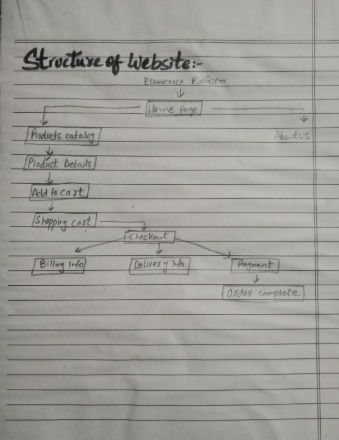 Structure of Website:-
Ecommerce Platform
Home Page
Products catalog
About Us
Product Details
Add to cart
Shopping cart
Checkout
Billing Info
Delivery Info
Payment
Order complete